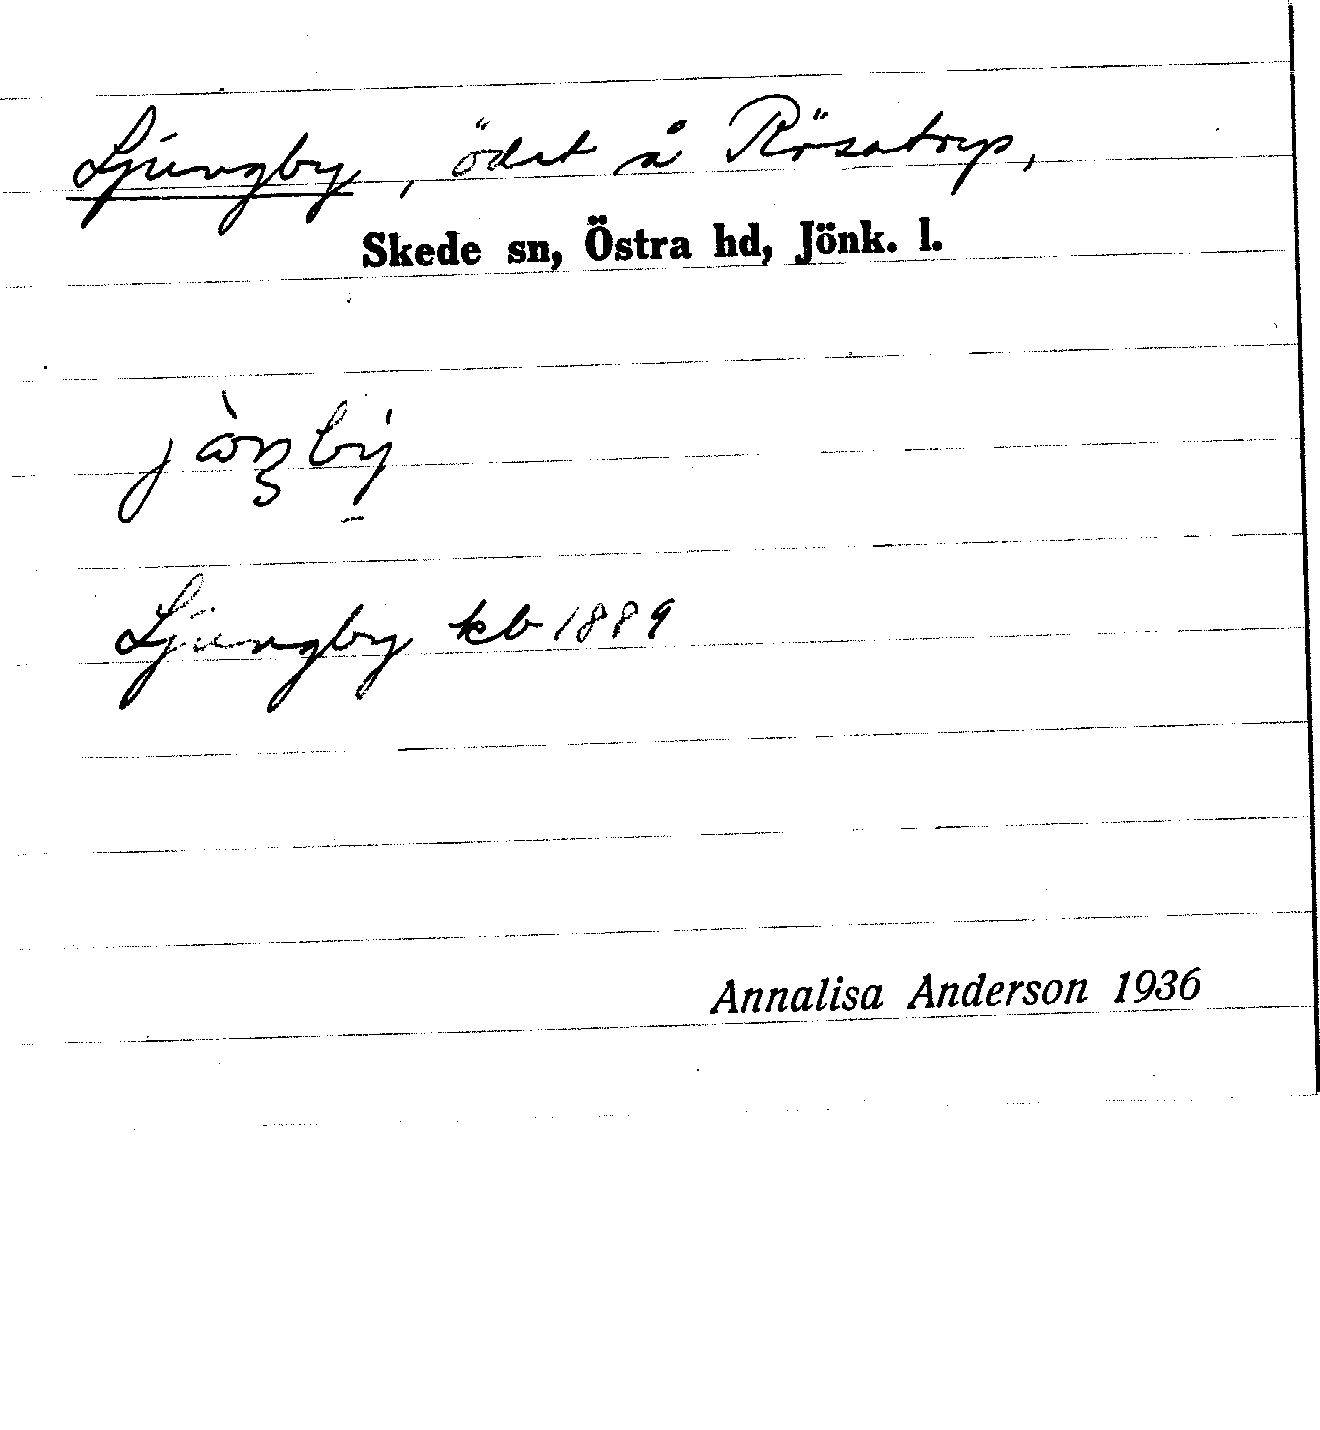 Ljungby, ödet å Rösatorp,
Skede sn, Östra hd, Jönk. l.
Ljungby kb 1889
Annalisa Anderson 1936